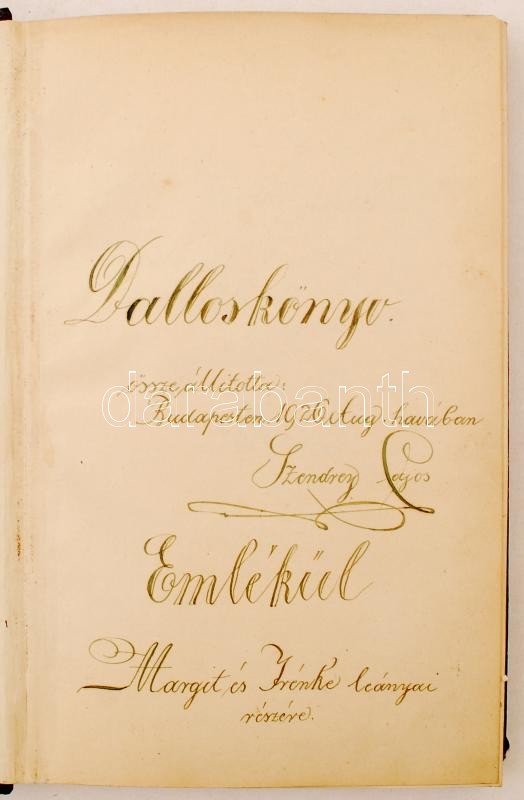 Dalloskönyv.
összeállította:
Budapesten 1926 Aug. havában
Szendrey Lajos
Emlékül
Margit és Irénke leányai
részére.
darabanth